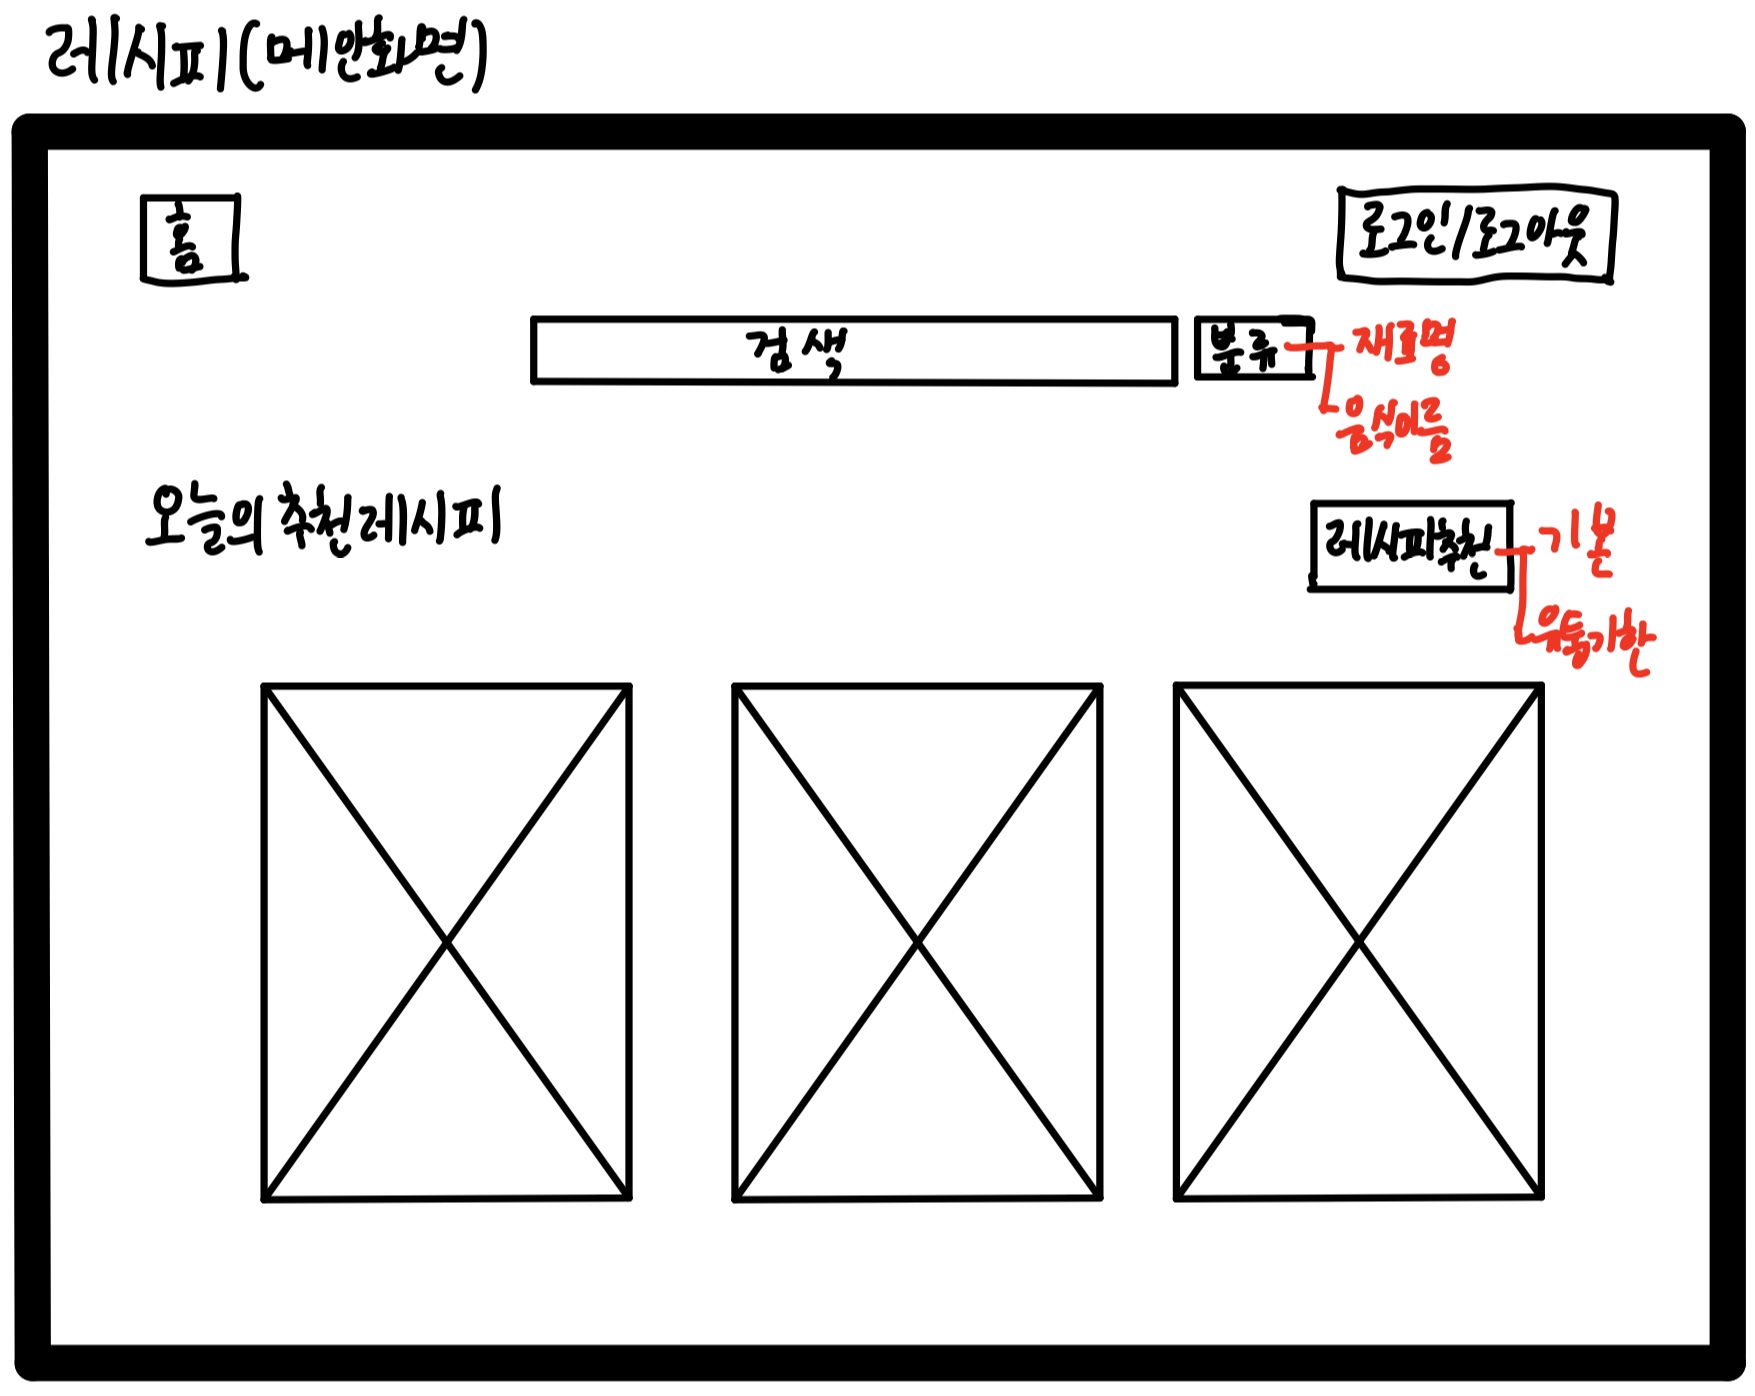 레시피(메인화면)
홈
로그인/로그아웃
검색
분류
재료명
음식이름
오늘의 추천레시피
레시피추천
기본
유통기한